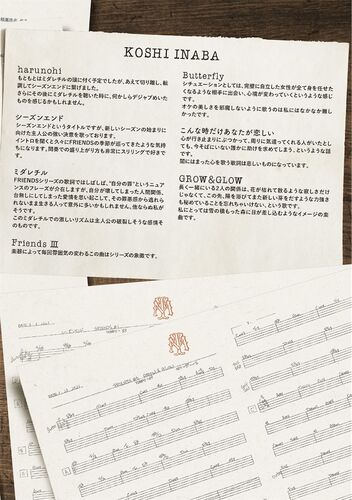 KOSHI INABA
harunohi
もともとはミダレチルの頭に付く予定でしたが、あえて切り離し、転
調してシーズンエンドに繋げました。
さらにその後にミダレチルを聴いた時に、何かしらデジャブめいた
ものを感じるかもしれません。
シーズンエンド
シーズンエンドというタイトルですが、新しいシーズンの始まりに
向けた主人公の強い決意を歌っております。
イントロを聞くと久々にFRIENDSの季節が巡ってきたような気持
ちになります。間奏での盛り上がり方も非常にスリリングで好きで
す。
ミダレチル
FRIENDSシリーズの歌詞ではしばしば、"自分の罪"というニュア
ンスのフレーズが介在しますが、自分が壊してしまった人間関係、
台無しにしてしまった愛情を思い起こして、その罪悪感から逃れら
れないまま生きる人って意外に多いかもしれません。他ならぬ私が
そうです。
このミダレチルでの激しいリズムは主人公の破裂しそうな感情そ
のものです。
Friends Ⅲ
楽器によって毎回雰囲気の変わるこの曲はシリーズの象徴です。
Butterfly
シチュエーションとしては、完璧に自立した女性が全て身を任せた
くなるような相手に出会い、心境が変わっていくというような感じ
です。
オケの美しさを邪魔しないように歌うのは私にはなかなか難し
かったです。
こんな時だけあなたが恋しい
心が行き止まりにぶつかって、周りに気遣ってくれる人がいたとし
ても、今そばにいない誰かに助けを求めてしまう、というような話
です。
闇にはまった心を歌う歌詞は悲しいものになっています。
GROW&GLOW
長く一緒にいる2人の関係は、花が枯れて散るような寂しさだけ
じゃなくて、この先、陽を浴びてまた新しい芽をだすような力強さ
も秘めていることを忘れちゃいけない、という歌です。
私にとっては雪の積もった森に日が差し込むようなイメージの楽
曲です。